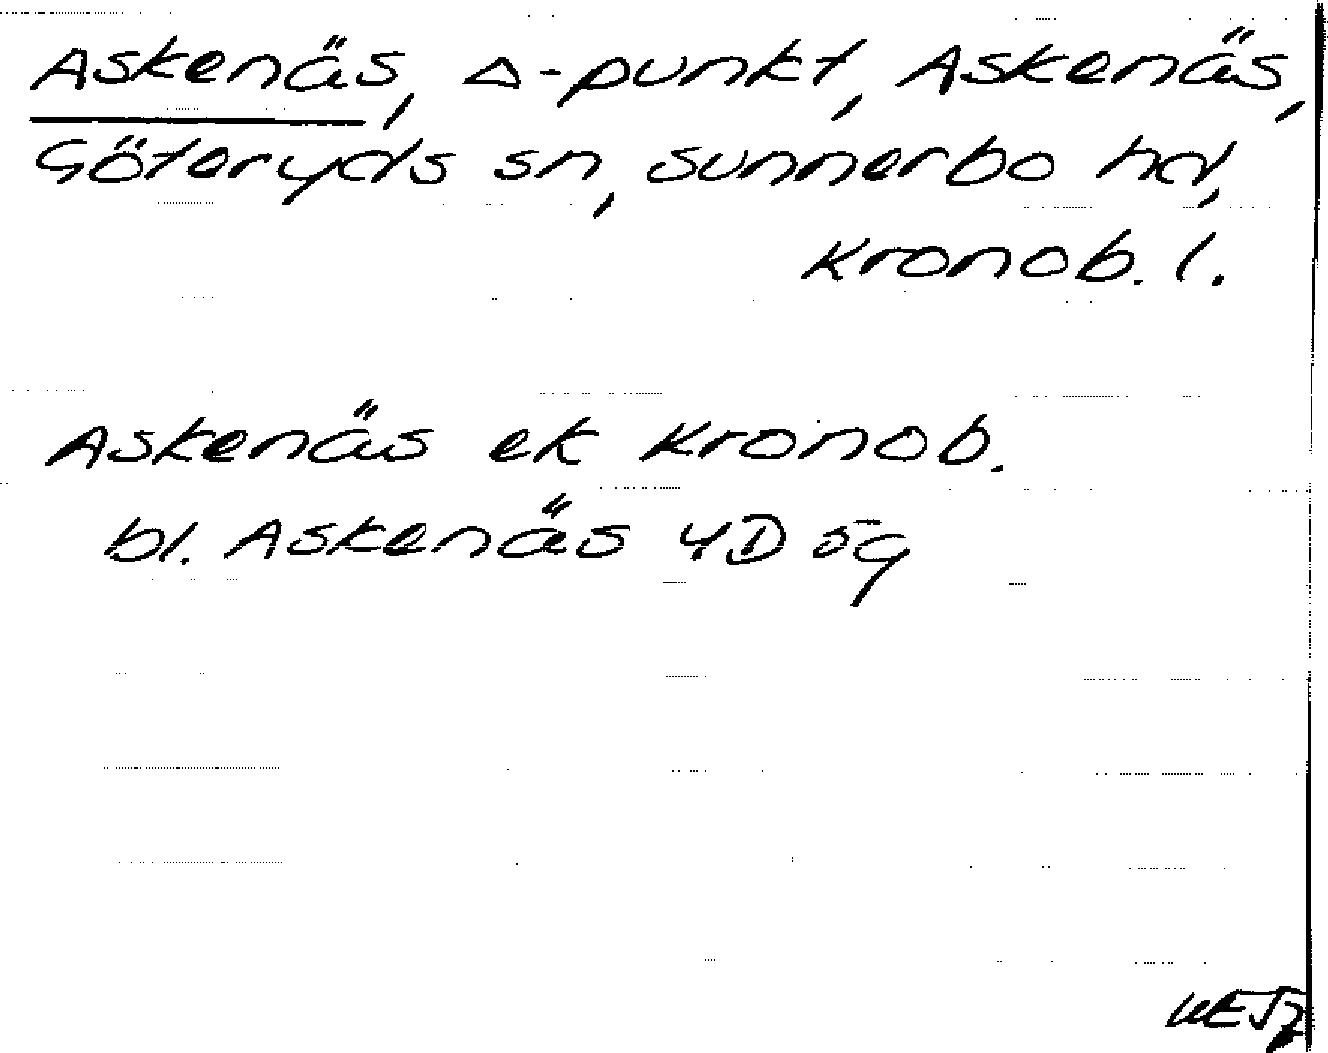 Askenäs, △-punkt, Askenäs,
Göteryds sn, Sunnerbo hd,
Kronob. l.
Askenäs ek Kronob.
bl. Askenäs 4D 5g